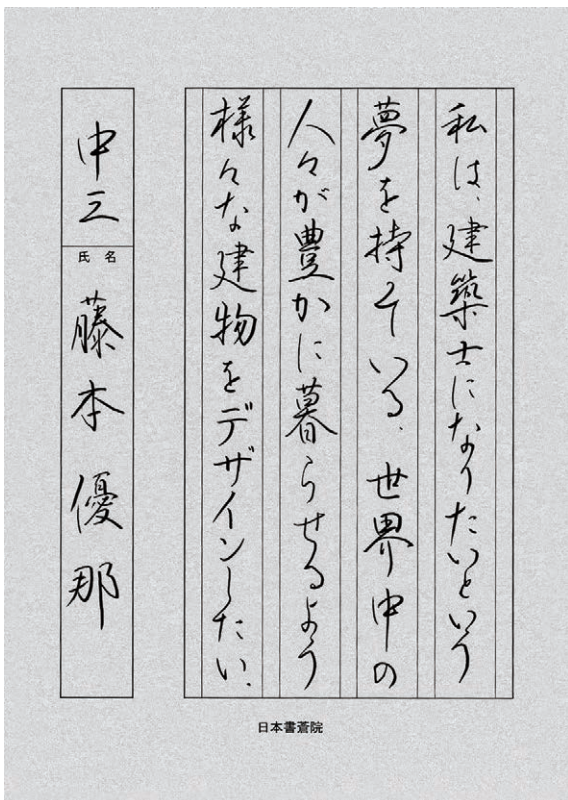 私は、建築士になりたいという
夢を持っている。世界中の
人々が豊かに暮らせるよう
様々な建物をデザインしたい。
中三
氏名
藤本優那
日本書蒼院